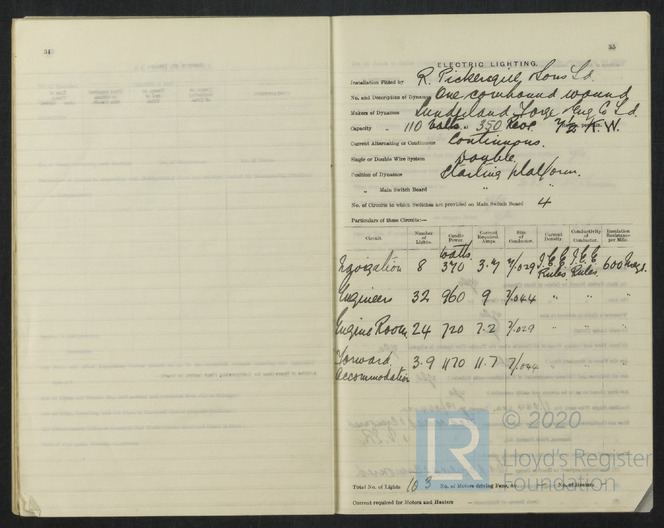 34
35
ELECTRIC LIGHTING.
Installation Fitted by R. Pickersgill, Sons Ld.
No. and Description of Dynamos One compound wound
Makers of Dynamos Sunderland Forge Eng Co Ld.
Capacity 110 Volts, at 350 Revs. 7½ K.W.
Current Alternating or Continuous Continuous.
Single or Double Wire System Double
Position of Dynamos Starting platform.
„ Main Switch Board „ „
No. of Circuits to which Switches are provided on Main Switch Board 4
Particulars of these Circuits:—
Circuit. Number of Lights. Candle Power. Current Required. Amps. Size of Conductor. Current Density. Conductivity of Conductor. Insulation Resistance per Mile.
Watts.
Navigation 8 370 3.7 7/.029 I.E.E. Rules. I.E.E. Rules. 600 Megs.
Engineers 32 960 9 7/.044 „ „ „
Engine Room 24 720 7.2 7/.029 „ „ „
Forward Accommodation 39 1170 11.7 7/.044 „ „ „
© 2020
LR
Lloyd's Register
Foundation
Total No. of Lights 103 No. of Motors driving Fans, &c. No. of Heaters
Current required for Motors and Heaters